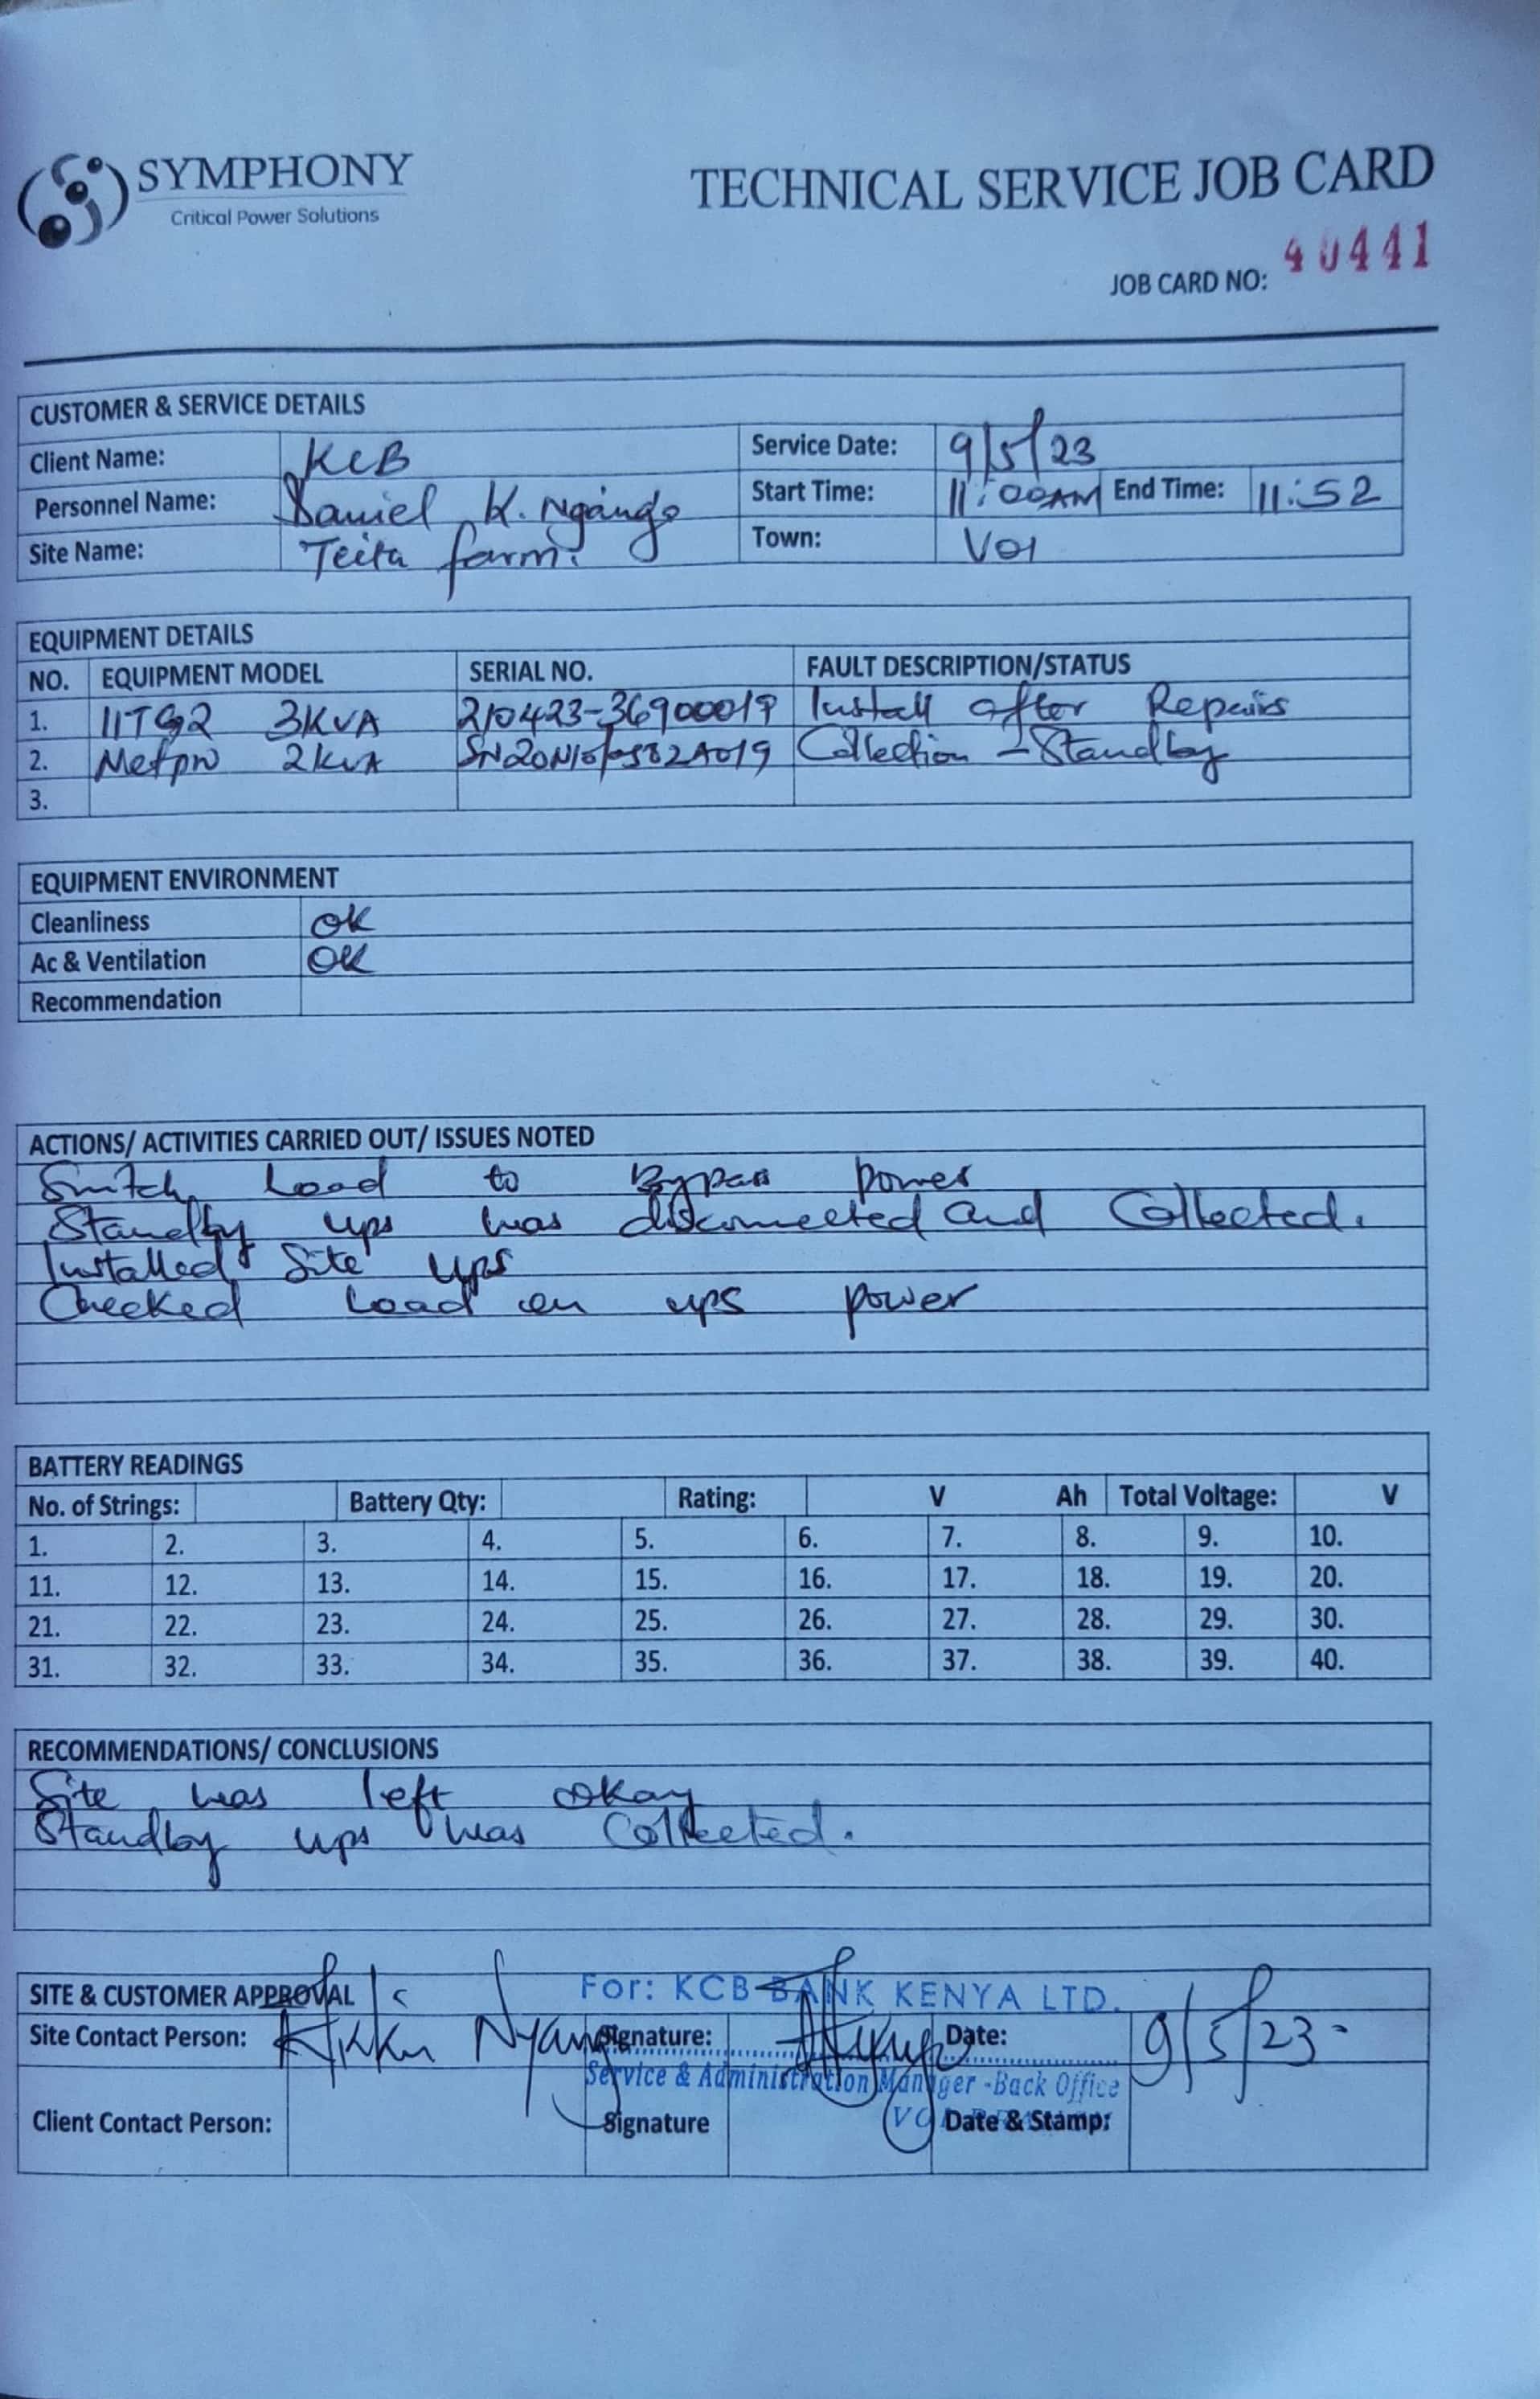 SYMPHONY
Critical Power Solutions
TECHNICAL SERVICE JOB CARD
JOB CARD NO: 40441
CUSTOMER & SERVICE DETAILS
Client Name: KCB Service Date: 9/5/23
Personnel Name: Daniel K. Ngángo Start Time: 11:00AM End Time: 11:52
Site Name: Teita farm. Town: VOI
EQUIPMENT DETAILS
NO. EQUIPMENT MODEL SERIAL NO. FAULT DESCRIPTION/STATUS
1. 3KVA Install after Repairs
2. 2KVA Collection - Standby
3.
EQUIPMENT ENVIRONMENT
Cleanliness OK
Ac & Ventilation OK
Recommendation
ACTIONS/ ACTIVITIES CARRIED OUT/ ISSUES NOTED
Switch Load to Bypass power
Standby ups was disconnected and Collected.
Installed Site ups
Checked Load on ups power
BATTERY READINGS
No. of Strings: Battery Qty: Rating: V Ah Total Voltage: V
1. 2. 3. 4. 5. 6. 7. 8. 9. 10.
11. 12. 13. 14. 15. 16. 17. 18. 19. 20.
21. 22. 23. 24. 25. 26. 27. 28. 29. 30.
31. 32. 33. 34. 35. 36. 37. 38. 39. 40.
RECOMMENDATIONS/ CONCLUSIONS
Site was left okay
Standby ups was Collected.
SITE & CUSTOMER APPROVAL For: KCB BANK KENYA LTD.
Site Contact Person: Signature: Date: 9/5/23
Service & Administration Manager -Back Office
Client Contact Person: Signature Date & Stamp: